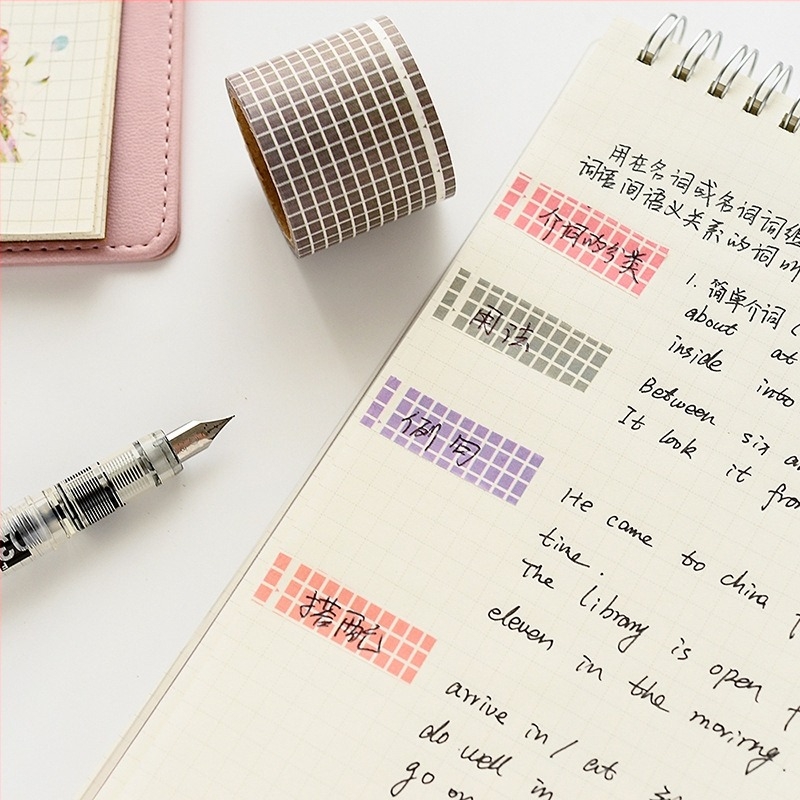 用在名词或名词词组
词语间语义关系的词叫
介词的分类
1. 简单介词(
about at
inside into
用法
Between six
It look it from
例句
He came to china
time.
The library is open
eleven in the morirng.
搭配
arrive in / at
do well in
go on